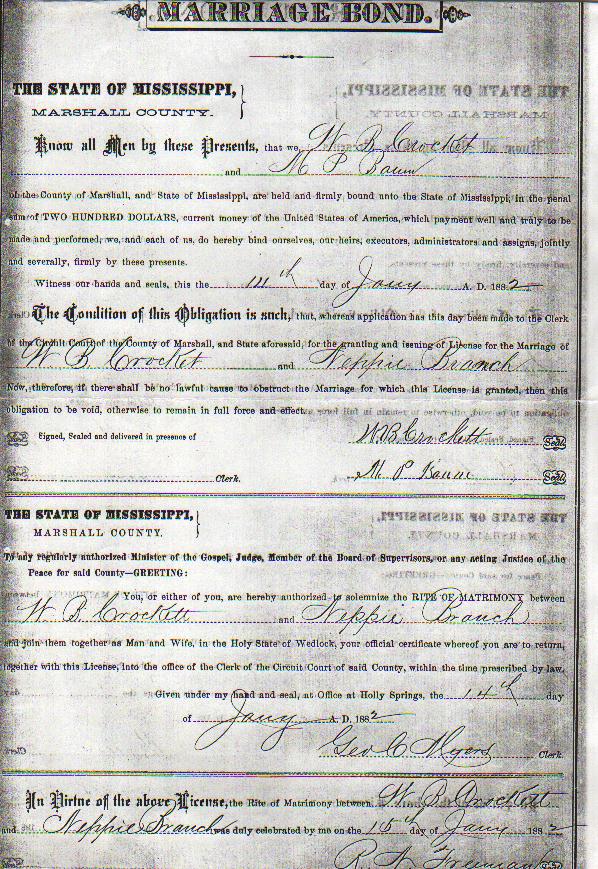 MARRIAGE BOND.
THE STATE OF MISSISSIPPI,
MARSHALL COUNTY.
Know all Men by these Presents, that we, W B Crocket
and M P Baum
of the County of Marshall, and State of Mississippi, are held and firmly bound unto the State of Mississippi, in the penal
sum of TWO HUNDRED DOLLARS, current money of the United States of America, which payment well and truly to be
made and performed, we, and each of us, do hereby bind ourselves, our heirs, executors, administrators and assigns, jointly
and severally, firmly by these presents.
Witness our hands and seals, this the 14th day of Jany A. D. 1882
The Condition of this Obligation is such, that, whereas application has this day been made to the Clerk
of the Circuit Court of the County of Marshall, and State aforesaid, for the granting and issuing of License for the Marriage of
W B Crocket and Neppie Branch
Now, therefore, if there shall be no lawful cause to obstruct the Marriage for which this License is granted, then this
obligation to be void, otherwise to remain in full force and effect.
Signed, Sealed and delivered in presence of W. B. Crockett Seal
Clerk. M P Baum Seal
THE STATE OF MISSISSIPPI,
MARSHALL COUNTY.
To any regularly authorized Minister of the Gospel, Judge, Member of the Board of Supervisors, or any acting Justice of the
Peace for said County—GREETING:
You, or either of you, are hereby authorized to solemnize the RITE OF MATRIMONY between
W B Crockett and Neppie Branch
and join them together as Man and Wife, in the Holy State of Wedlock, your official certificate whereof you are to return,
together with this License, into the office of the Clerk of the Circuit Court of said County, within the time prescribed by law.
Given under my hand and seal, at Office at Holly Springs, the 14th day
of Jany A. D. 1882
Geo C Myers Clerk.
In Virtue of the above License, the Rite of Matrimony between W. B. Crockett
and Neppie Branch was duly celebrated by me on the 15th day of Jany 1882
R. N. Freeman